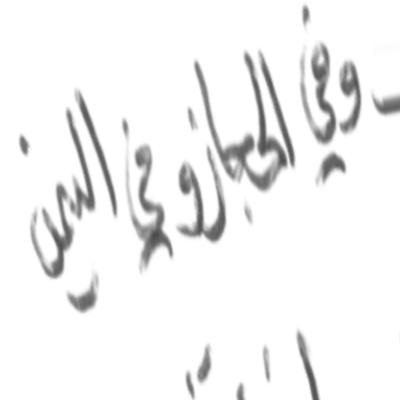 وفي الحجاز وفي اليمن